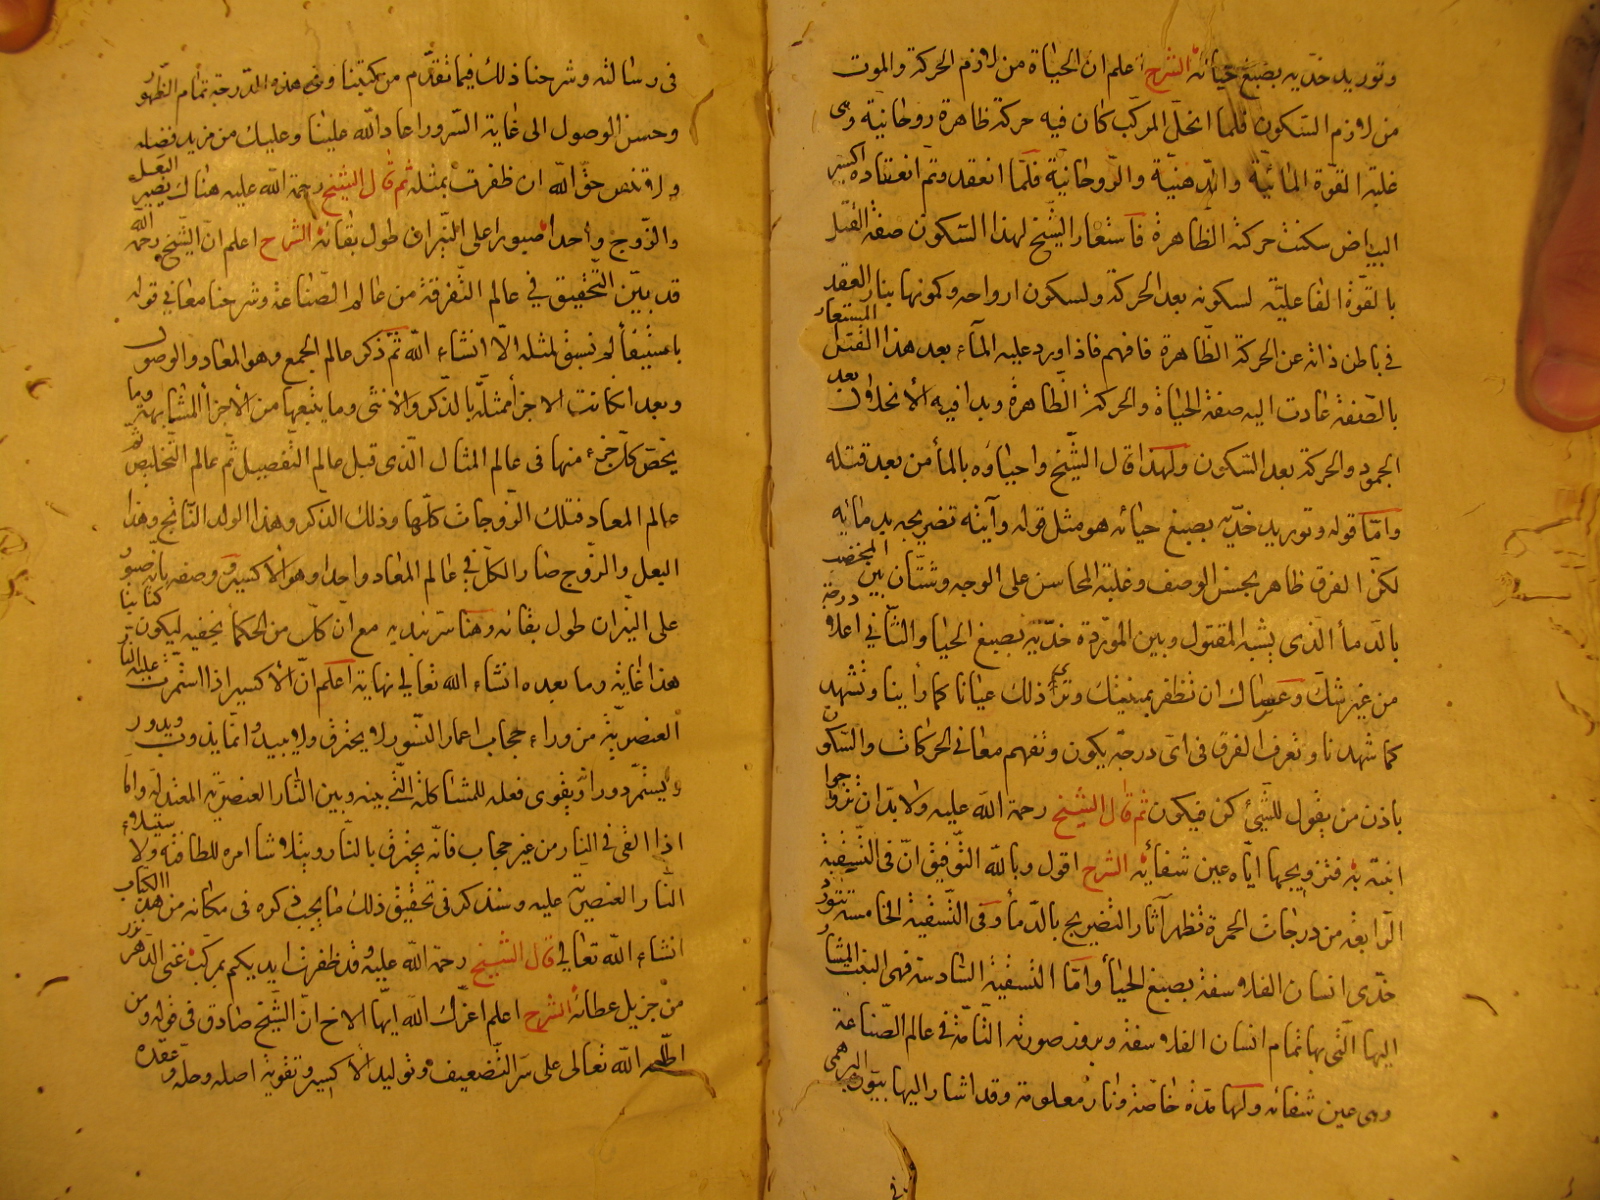 وتوريد خدّيه بصبغ حيائه الشرح اعلم ان الحياة من لازم الحركة والموت
من لازم السكون فلما انحل المركب كان فيه حركة ظاهرة روحانية وهى
غلبة القوة المائية والدهنية والروحانية فلمّا انعقد وتم انعقاده اكسير
البياض سكنت حركته الظاهرة فاستعار الشيخ لهذا السكون صفة القتل
بالقوة الفاعليّة لسكونه بعد الحركة ولسكون ارواحه وكمونها بنار العقد
فى باطن ذاته عن الحركة الظاهرة فافهم فاذا ورد عليه المآء بعد هذا القتل المستعار
بالصّفة عادت اليه صفة الحياة والحركة الظاهرة وبدا فيه الأنحلال بعد
الجمود والحركة بعد السكون ولهذا قال الشيخ واحياؤه بالمأ من بعد قتله
وامّا قوله وتوريد خدّيه بصبغ حيائه هو مثل قوله وآيته تضريجه بدمائه
لكن الفرق ظاهر بحسن الوصف وغلبة المحاسن على الوجه وشتّان بين المخضب
بالدمأ الذى يشبه المقتول وبين المورّدة خدّيه بصبغ الحيا والثانى اعلا درجة
من غير شك وعساك ان تظفر ببغيتك وترى ذلك عيانا كما راينا وتشهد
كما شهدنا وتعرف الفرق فى اىّ درجة يكون وتفهم معانى الحركات والسكون
باذن من يقول للشئ كن فيكون ثم قال الشيخ رحمة الله عليه ولا بدّ ان تزوّجوا
ابنته به فتزويجها ايّاه عين شفائه الشرح اقول وبالله التوفيق انّ فى التسقية
الرابعة من درجات الحمرة تظهر آثار التضريج بالدمأ وفى التسقية الخامسة تتورد
خدّى انسان الفلاسفة بصبغ الحيأ وامّا التسقية السادسة فهى البنت المشار
اليها التى بها تمام انسان الفلاسفة وبروز صورته التامّة فى عالم الصّناعة
وهى عين شفائه ولها مدة خاصّة ونار معلومة وقد اشار اليها بيون البرهمى
فى
فى رسالته وشرحنا ذلك فيما تقدّم من كتبنا وفى هذه الدرجة تمام الظّهور
وحسن الوصول الى غاية السّرور اعاد الله علينا وعليك من مزيد فضله
ولا تنس حق الله ان ظفرت بمثله ثم قال الشيخ رحمة الله عليه هناك يصير البعل
والزوج واحدا صبورا على النيران طول بقائه الشرح اعلم ان الشيخ رحمه الله
قد بيّن التّحقيق فى عالم التّفرقة من عالم الصّناعة وشرحنا معانى قوله
لم نسبق لمثله الّا انشاء الله ثم ذكر عالم الجمع وهو المعاد والوصول
وبعد انكانت الاجزأ ممثلة بالذكر والأنثى وما يتبعها من الأجزأ المشابهة وما
يخصّ كلّ جزء منها فى عالم المثال الّذى قبل عالم التفصيل ثم عالم التخليص ثم
عالم المعاد فتلك الزوجات كلّها وذلك الذكر وهذا الولد النّاتج وهذا
البعل والزوج صار الكلّ فى عالم المعاد واحدا وهو الأكسير ووصفه بانه صبور
على النيران طول بقائه وهنا سرّ نبديه مع ان كلّ من الحكمأ يخفيه ليكون كتابنا
هذا غاية وما بعده انشاء الله تعالى نهاية اعلم انّ الأكسير اذا استمرّت عليه النار
العنصريّة من وراء حجاب اعمار النّسور لا يحترق ولا يبيد وانّما يذوب ويدور
ويستمر دورا ويقوى فعله للمشاكلة التّى بينه وبين النّار العنصريّة المعتدلة وامّا
اذا القى فى النار من غير حجاب فانّه يحترق بالنّار ويتلاشا امره للطافته ولاستيلاء
النّار العنصريّة عليه وسنذكر فى تحقيق ذلك ما يجب ذكره فى مكانه من هذا الكتاب
انشاء الله تعالى قال الشيخ رحمة الله عليه وقد ظفرت ايديكم بمركّب غنى الدّهر
من جزيل عطائه الشرح اعلم اعزّك الله ايّها الاخ انّ الشيخ صادق فى قوله ومن
اطّلعه الله تعالى على سرّ التّضعيف وتوليد الأكسير وتقوية اصله وحلّه وعقده